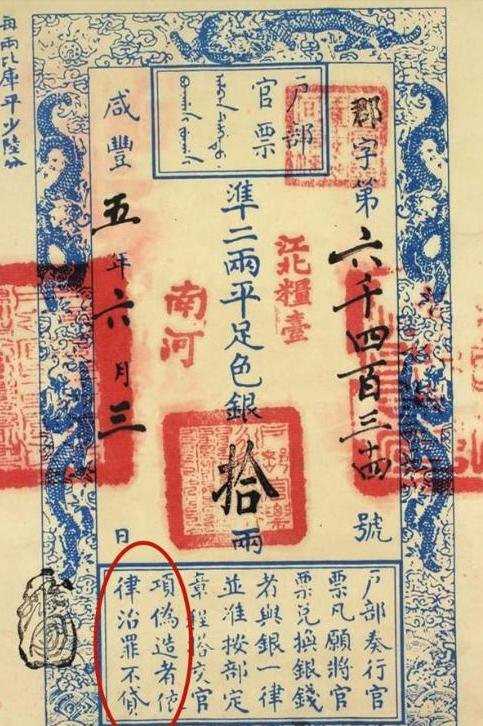 戶部
官票
郡字第六千四百三十四號
江北糧臺
準二兩平足色銀拾兩
南河
咸豐五年六月三日
每兩比庫平少陸分
戶部奏行官
票凡願將官
票兌換銀錢
者與銀一律
並准按部定
章程搭交官
項偽造者依
律治罪不貸